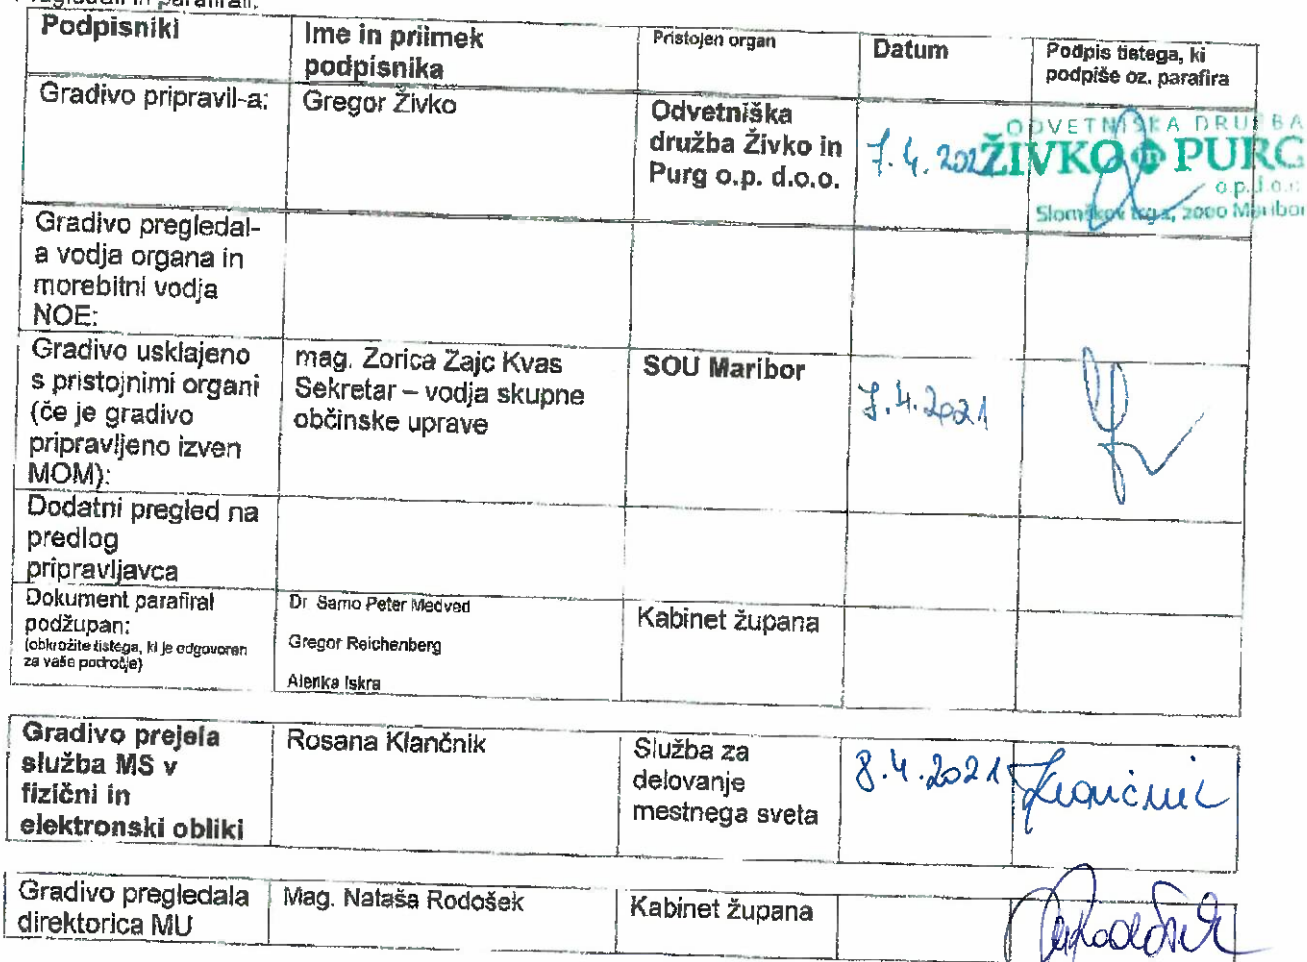 Pregledali in parafirali:
Podpisniki
Ime in priimek
podpisnika
Pristojen organ
Datum
Podpis tistega, ki
podpiše oz. parafira
Gradivo pripravil-a:
Gregor Živko
Odvetniška
družba Živko in
Purg o.p. d.o.o.
7.4.202
ODVETNIŠKA DRUŽBA
ŽIVKO in PURG
o.p. d.o.o.
Slomškov trg 2, 2000 Maribor
Gradivo pregledal-
a vodja organa in
morebitni vodja
NOE:
Gradivo usklajeno
s pristojnimi organi
(če je gradivo
pripravljeno izven
MOM):
mag. Zorica Zajc Kvas
Sekretar – vodja skupne
občinske uprave
SOU Maribor
7.4.2021
Dodatni pregled na
predlog
pripravljavca
Dokument parafiral
podžupan:
(obkrožite tistega, ki je odgovoren
za vaše področje)
Dr. Samo Peter Medved
Gregor Reichenberg
Alenka Iskra
Kabinet župana
Gradivo prejela
služba MS v
fizični in
elektronski obliki
Rosana Klančnik
Služba za
delovanje
mestnega sveta
8.4.2021
Klančnik
Gradivo pregledala
direktorica MU
Mag. Nataša Rodošek
Kabinet župana